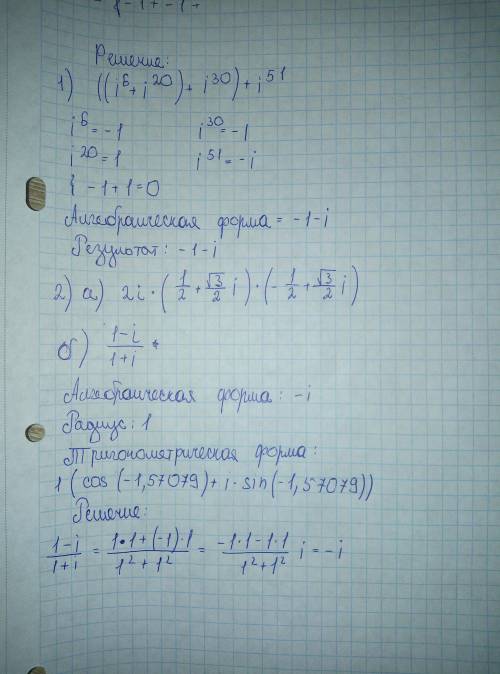 Решение:
1) ((i⁶ + i²⁰) + i³⁰) + i⁵¹
i⁶ = -1 i³⁰ = -1
i²⁰ = 1 i⁵¹ = -i
{ -1 + 1 = 0
Алгебраическая форма = -1-i
Результат: -1-i
2) а) 2i · (1/2 + √3/2 i) · (-1/2 + √3/2 i)
б) (1-i)/(1+i)
Алгебраическая форма: -i
Радиус: 1
Тригонометрическая форма:
1(cos(-1,57079) + i·sin(-1,57079))
Решение:
(1-i)/(1+i) = (1·1+(-1)·1)/(1²+1²) = (-1·1-1·1)/(1²+1²) i = -i